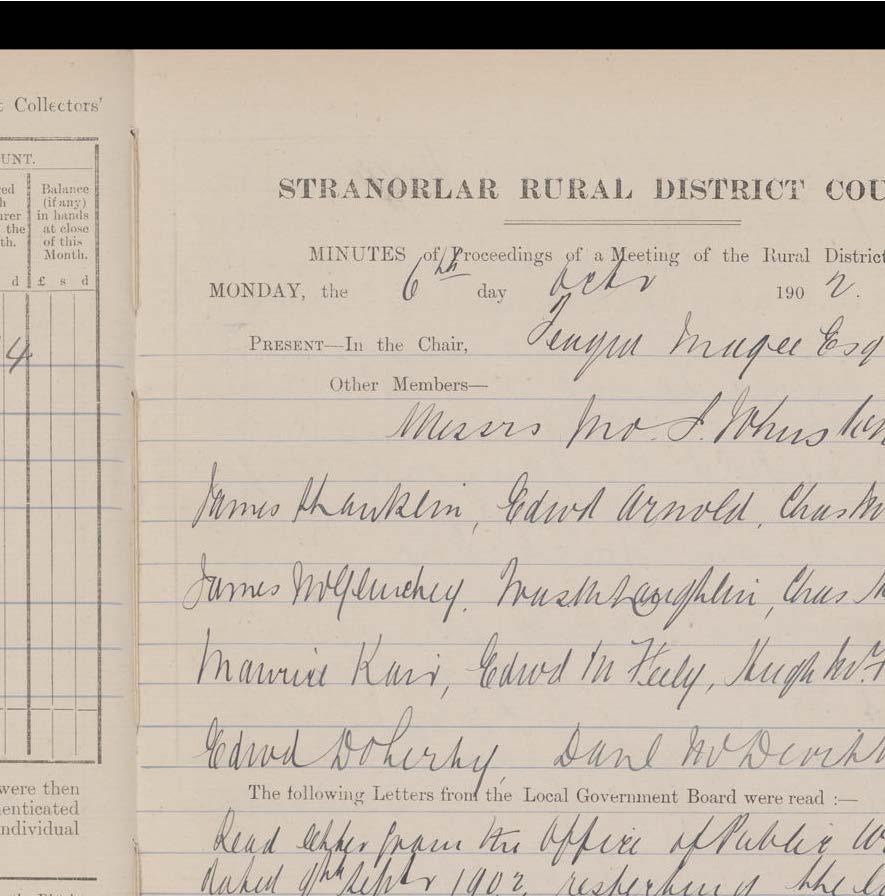 t Collectors'
UNT.
ed
h
urer
the
th.
Balance
(if any)
in hands
at close
of this
Month.
d £ s d
4
were then
enticated
ndividual
STRANORLAR RURAL DISTRICT COU
MINUTES of Proceedings of a Meeting of the Rural District
MONDAY, the 6th day Octr 1902.
PRESENT—In the Chair, Magee Esq
Other Members—
Messrs Jno. S. Johnston
James Hanklin, Edwd Arnold, Chas
James McGlinchey, McLaughlin, Chas
Maurice Karr, Edwd McFeely, Hugh Mc
Edwd Doherty, Danl McDevitt
The following Letters from the Local Government Board were read :—
Read letter from the Office of Public W
dated 9th Septr 1902, respecting the